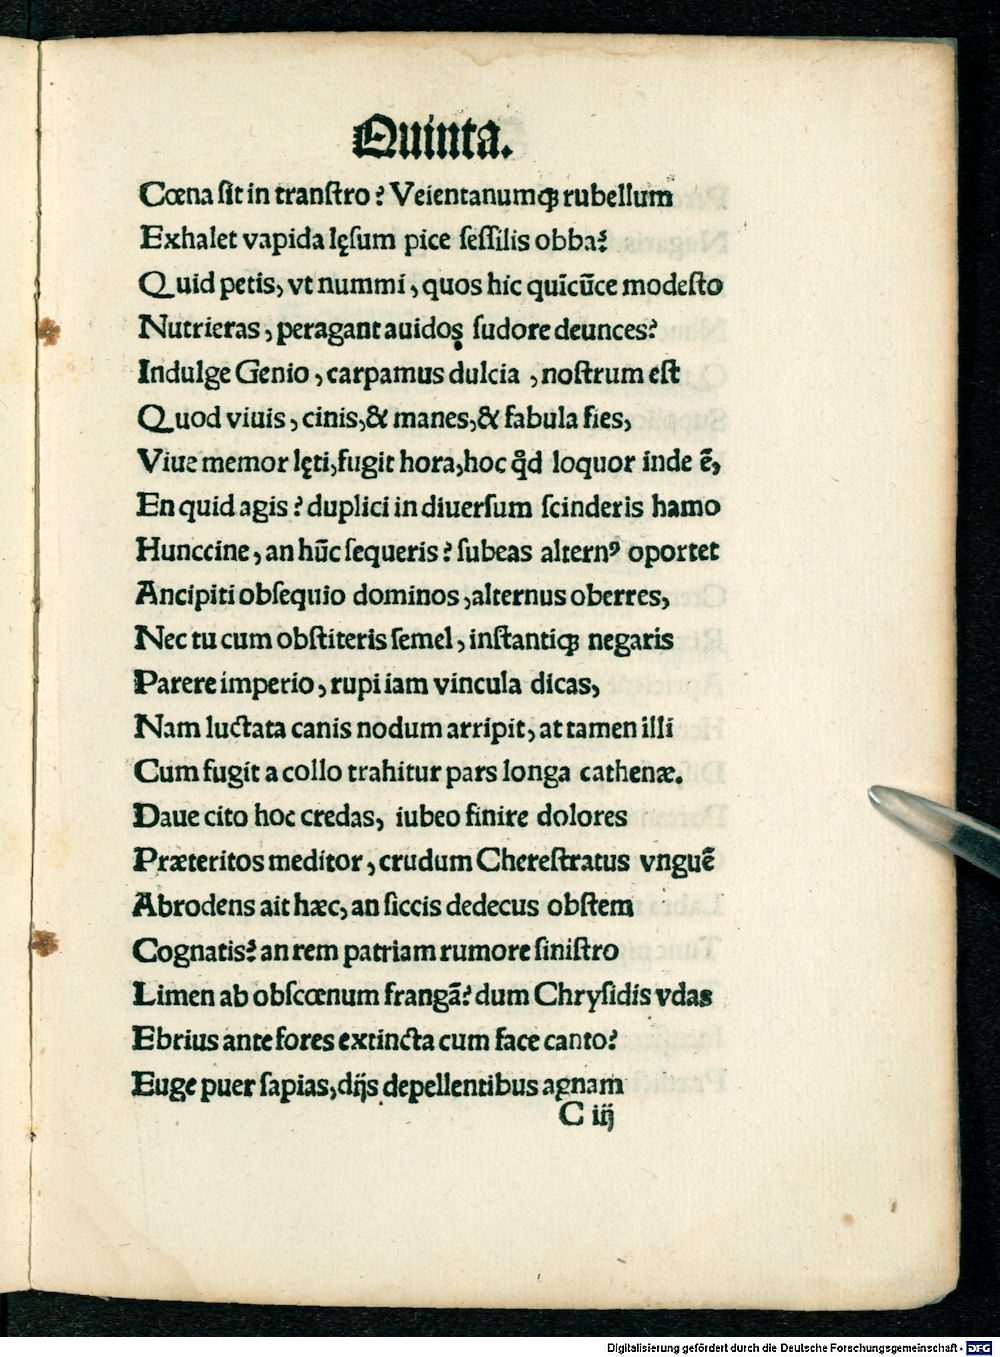 Quinta.
Cœna ſit in tranſtro? Veientanumqꝫ rubellum
Exhalet vapida lęſum pice ſeſſilis obba?
Quid petis, vt nummi, quos hic quīcūce modeſto
Nutrieras, peragant auidos ſudore deunces?
Indulge Genio, carpamus dulcia, noſtrum eſt
Quod viuis, cinis, & manes, & fabula fies,
Viue memor lęti, fugit hora, hoc qď loquor inde ē,
En quid agis? duplici in diuerſum ſcinderis hamo
Hunccine, an hūc ſequeris? ſubeas alternꝰ oportet
Ancipiti obſequio dominos, alternus oberres,
Nec tu cum obſtiteris ſemel, inſtantiqꝫ negaris
Parere imperio, rupi iam vincula dicas,
Nam luctata canis nodum arripit, at tamen illi
Cum fugit a collo trahitur pars longa cathenæ.
Daue cito hoc credas, iubeo finire dolores
Præteritos meditor, crudum Chereſtratus vnguē
Abrodens ait hæc, an ſiccis dedecus obſtem
Cognatis? an rem patriam rumore ſiniſtro
Limen ab obſcœnum frangā? dum Chryſidis vdas
Ebrius ante fores extincta cum face canto?
Euge puer ſapias, dijs depellentibus agnam
C iij
Digitalisierung gefördert durch die Deutsche Forschungsgemeinschaft - DFG